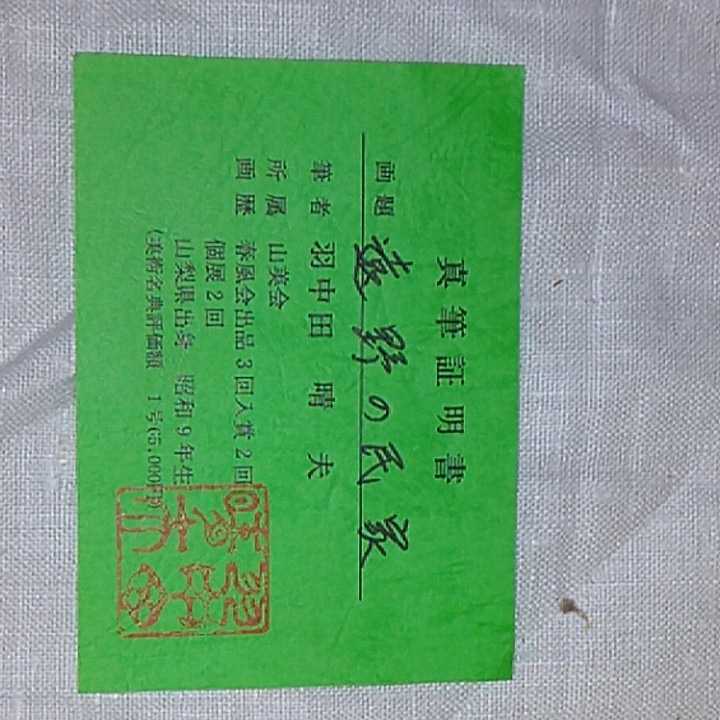 真筆証明書
画題 遠野の民家
筆者 羽中田 晴夫
所属 山美会
画歴 春風会出品3回入賞2回
個展2回
山梨県出身 昭和9年生
(美術名典評価額 1号65,000円)